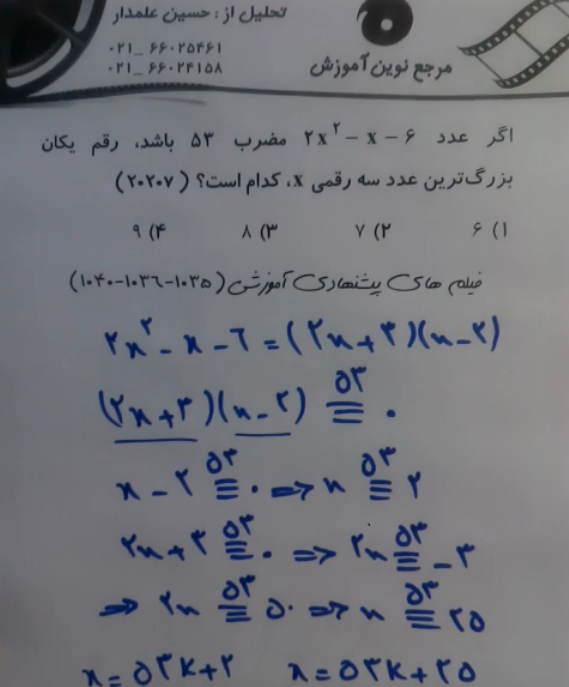 تحلیل از : حسین علمدار
۰۲۱_ ۶۶۰۲۵۴۶۱
۰۲۱_ ۶۶۰۲۴۱۵۸
مرجع نوین آموزش
اگر عدد ۲x۲ − x − ۶ مضرب ۵۳ باشد، رقم یکان
بزرگ‌ترین عدد سه رقمی x، کدام است؟ (۲۰۲۰۷)
۱) ۶ ۲) ۷ ۳) ۸ ۴) ۹
فیلم های پیشنهادی آموزشی (۱۰۳۵-۱۰۳۶-۱۰۴۰)
۲x۲ - x - ۶ = (۲x + ۳)(x - ۲)
(۲x + ۳)(x - ۲) ≡ ۵۳ ۰
x - ۲ ≡ ۵۳ ۰ ⇒ x ≡ ۵۳ ۲
۲x + ۳ ≡ ۵۳ ۰ ⇒ ۲x ≡ ۵۳ -۳
⇒ ۲x ≡ ۵۳ ۵۰ ⇒ x ≡ ۵۳ ۲۵
x = ۵۳k + ۲ x = ۵۳k + ۲۵